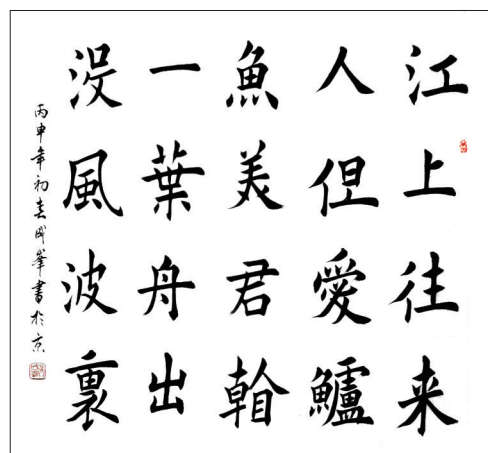 江上往来
人但愛鱸
魚美君看
一葉舟出
没風波裏
丙申年初春成峯書於京